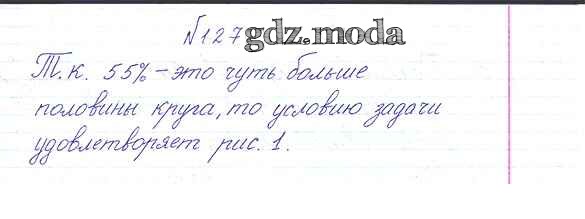 №127 gdz.moda
Т.к. 55% – это чуть больше
половины круга, то условию задачи
удовлетворяет рис. 1.